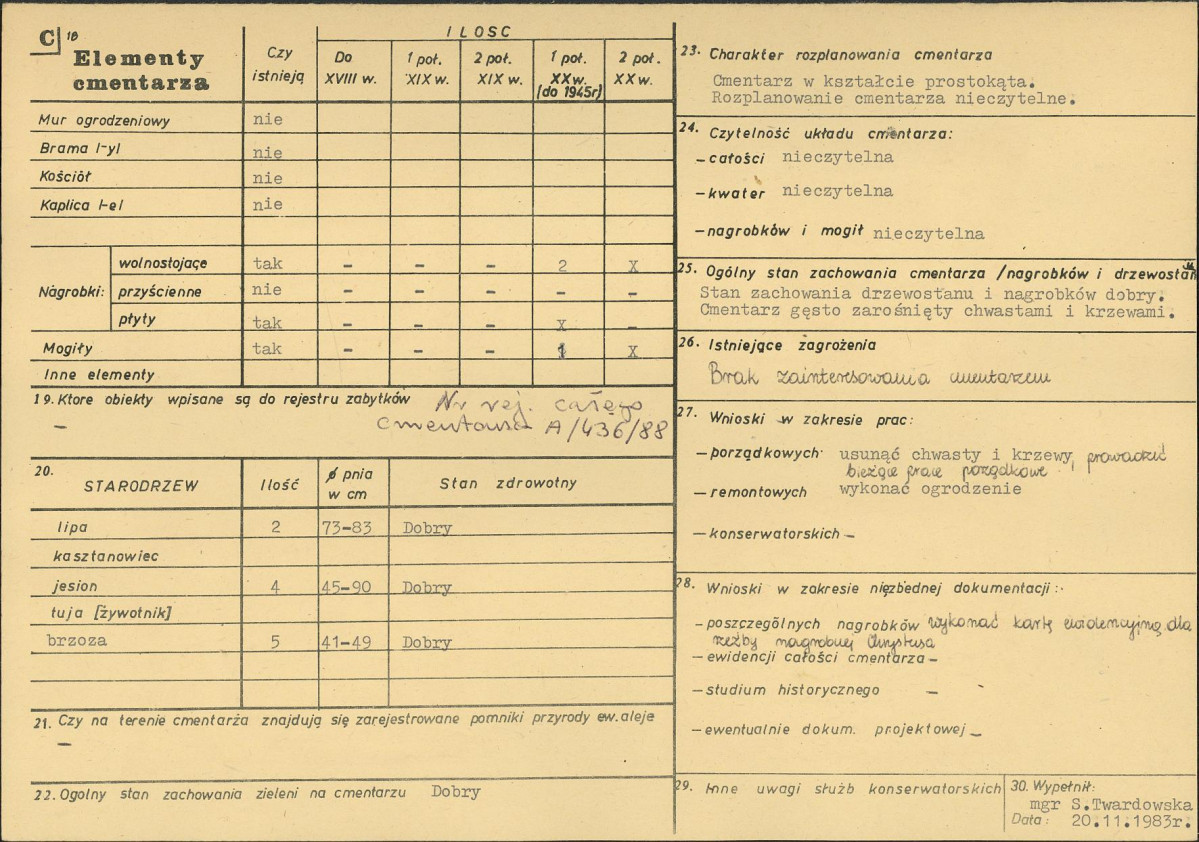 C 18
Elementy
cmentarza
Czy
istnieją
ILOSC
Do
XVIII w.
1 poł.
XIX w.
2 poł.
XIX w.
1 poł.
XX w.
(do 1945r)
2 poł.
XX w.
Mur ogrodzeniowy nie
Brama /-y/ nie
Kościół nie
Kaplica /-e/ nie
Nagrobki:
wolnostojące tak – – – 2 X
przyścienne nie – – – – –
płyty tak – – – X –
Mogiły tak – – – 1 X
Inne elementy
19. Ktore obiekty wpisane są do rejestru zabytków Nr rej. całego
– cmentarza A/436/88
20.
STARODRZEW
Ilość
ø pnia
w cm
Stan zdrowotny
lipa 2 73-83 Dobry
kasztanowiec
jesion 4 45-90 Dobry
tuja [żywotnik]
brzoza 5 41-49 Dobry
21. Czy na terenie cmentarża znajdują się zarejestrowane pomniki przyrody ew. aleje
–
22. Ogolny stan zachowania zieleni na cmentarzu Dobry
23. Charakter rozplanowania cmentarza
Cmentarz w kształcie prostokąta.
Rozplanowanie cmentarza nieczytelne.
24. Czytelność układu cmentarza:
– całości nieczytelna
– kwater nieczytelna
– nagrobków i mogił nieczytelna
25. Ogólny stan zachowania cmentarza /nagrobków i drzewostan
Stan zachowania drzewostanu i nagrobków dobry.
Cmentarz gęsto zarośnięty chwastami i krzewami.
26. Istniejące zagrożenia
Brak zainteresowania cmentarzem
27. Wnioski w zakresie prac:
– porządkowych usunąć chwasty i krzewy, prowadzić
bieżące prace porządkowe.
– remontowych wykonać ogrodzenie
– konserwatorskich –
28. Wnioski w zakresie niezbędnej dokumentacji:
– poszczególnych nagrobków wykonać kartę ewidencyjną dla
rzeźby nagrobnej Chrystusa
– ewidencji całości cmentarza –
– studium historycznego –
– ewentualnie dokum. projektowej –
29. Inne uwagi służb konserwatorskich
30. Wypełnił:
mgr S.Twardowska
Data: 20.11.1983r.